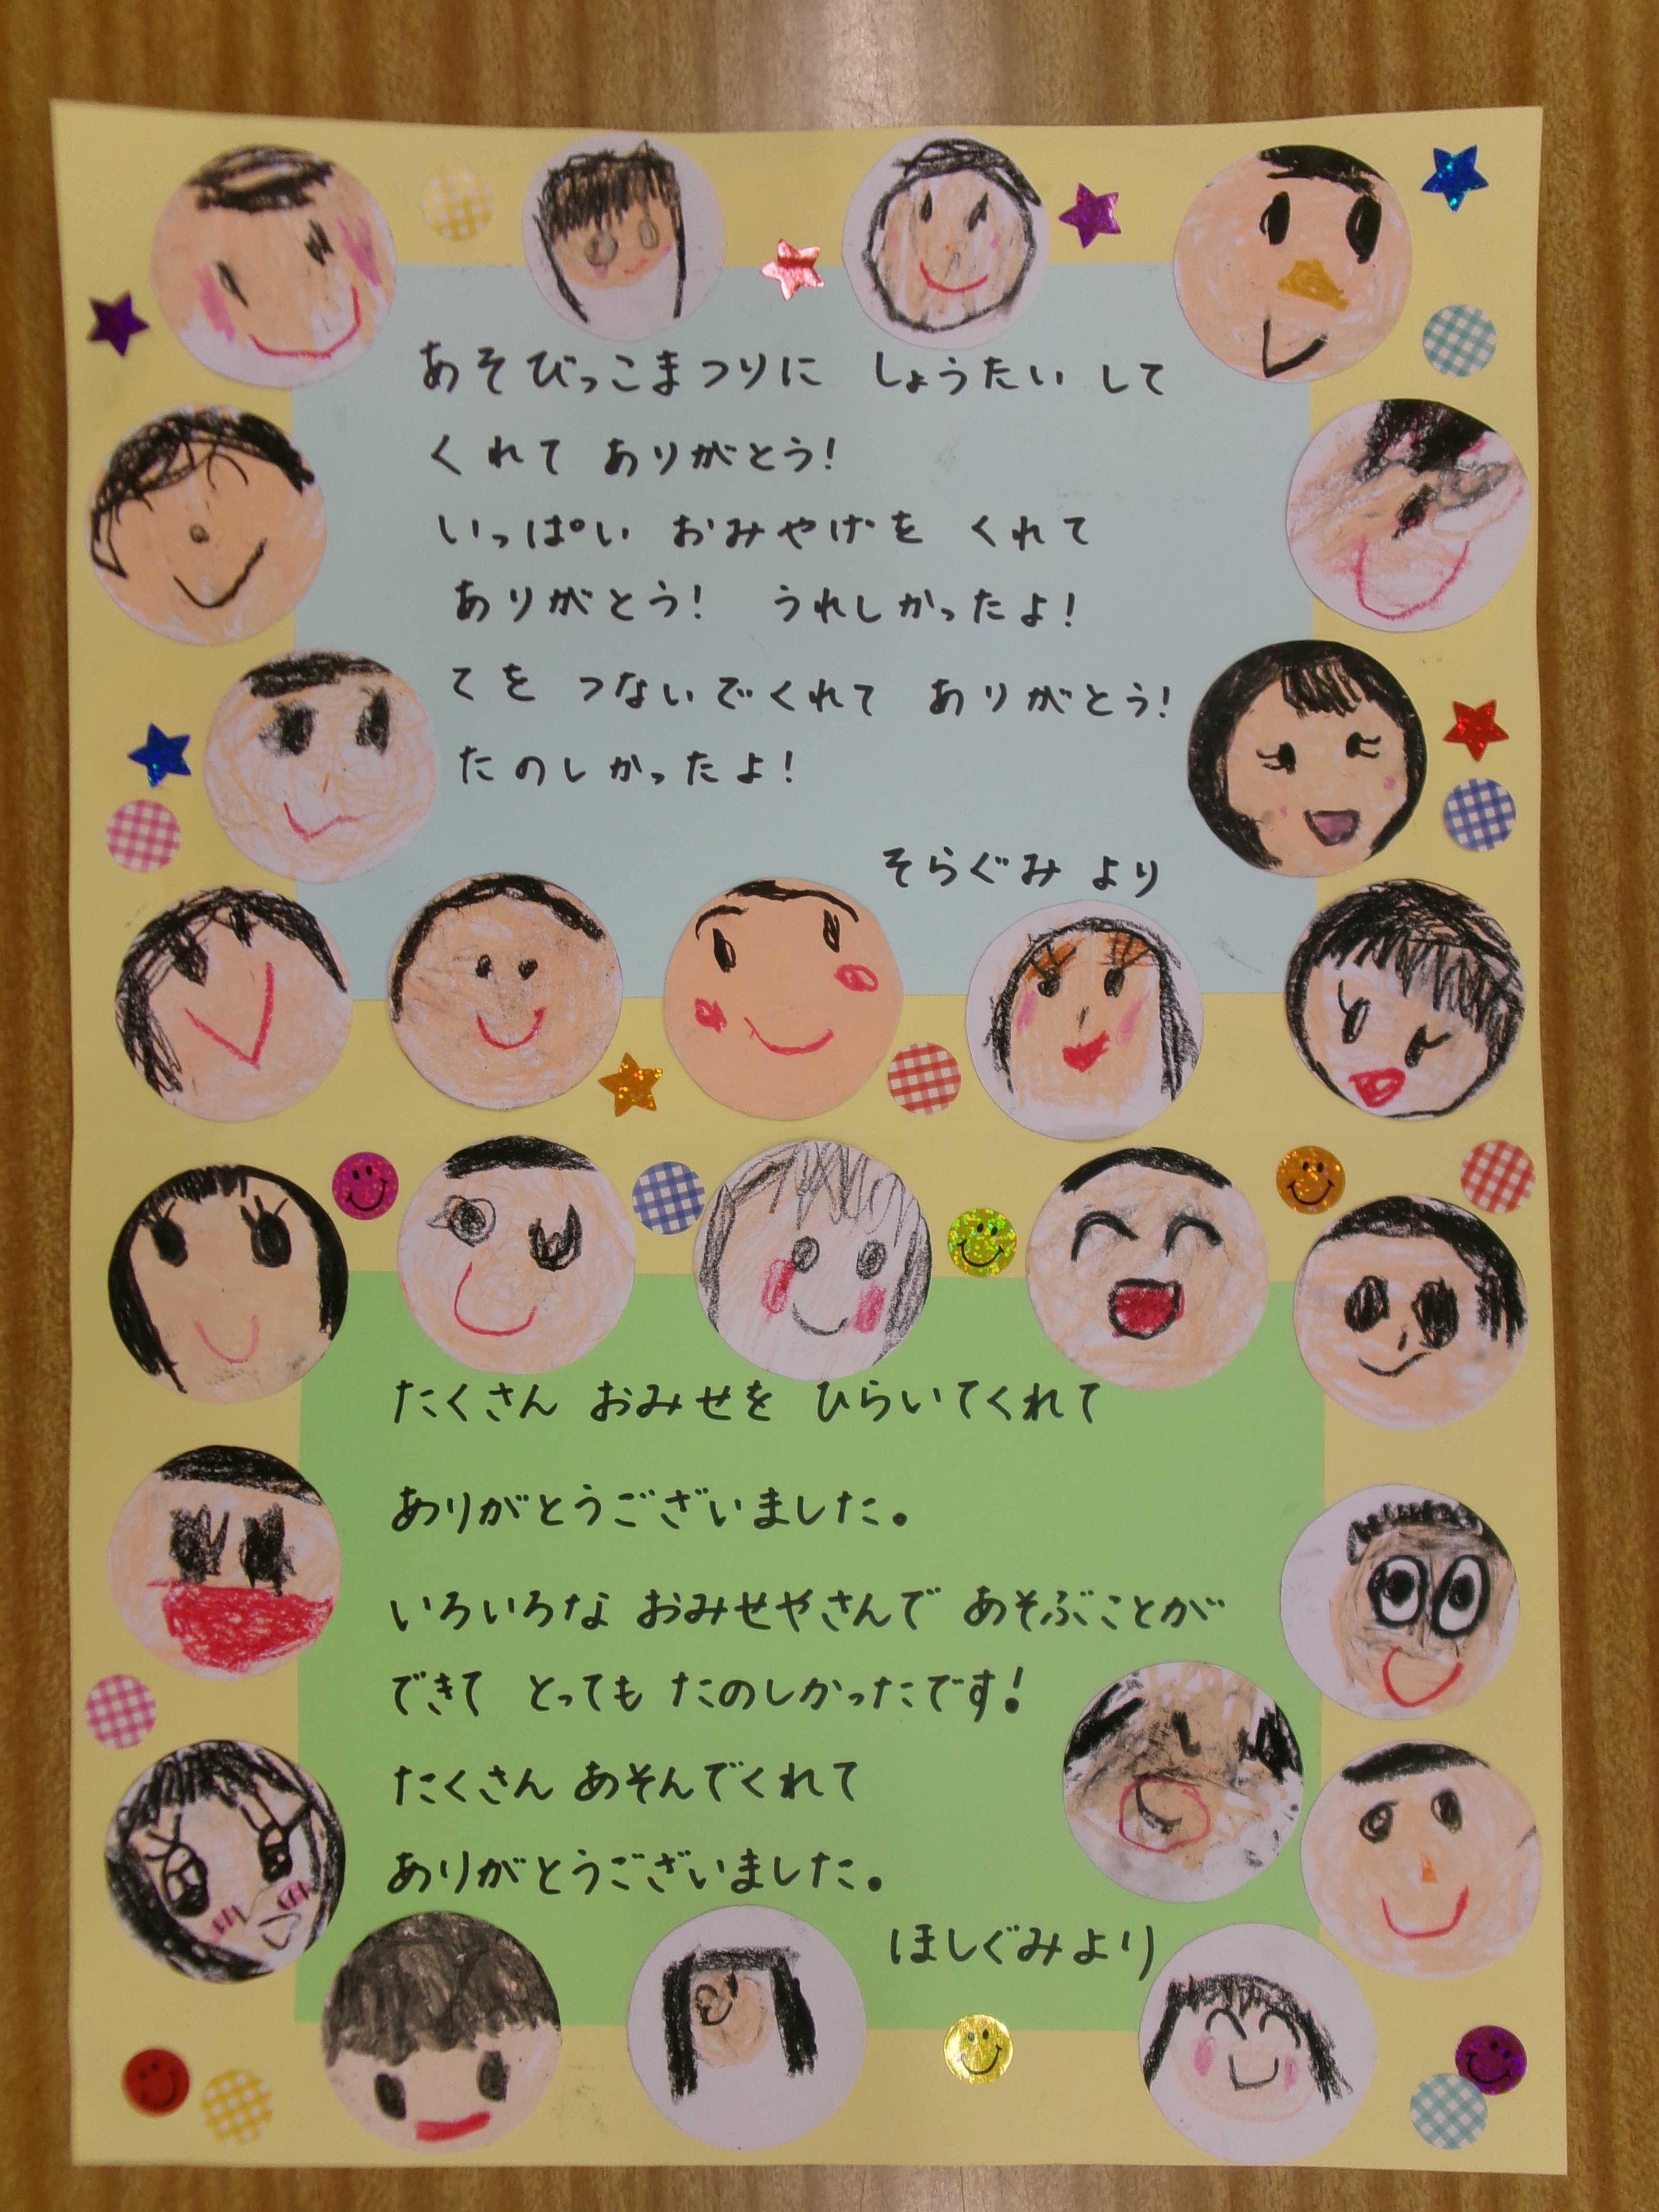 あそびっこまつりに しょうたい して
くれて ありがとう!
いっぱい おみやげを くれて
ありがとう! うれしかったよ!
てを つないでくれて ありがとう!
たのしかったよ!
そらぐみ より
たくさん おみせを ひらいてくれて
ありがとうございました。
いろいろな おみせやさんで あそぶことが
できて とっても たのしかったです!
たくさん あそんでくれて
ありがとうございました。
ほしぐみより